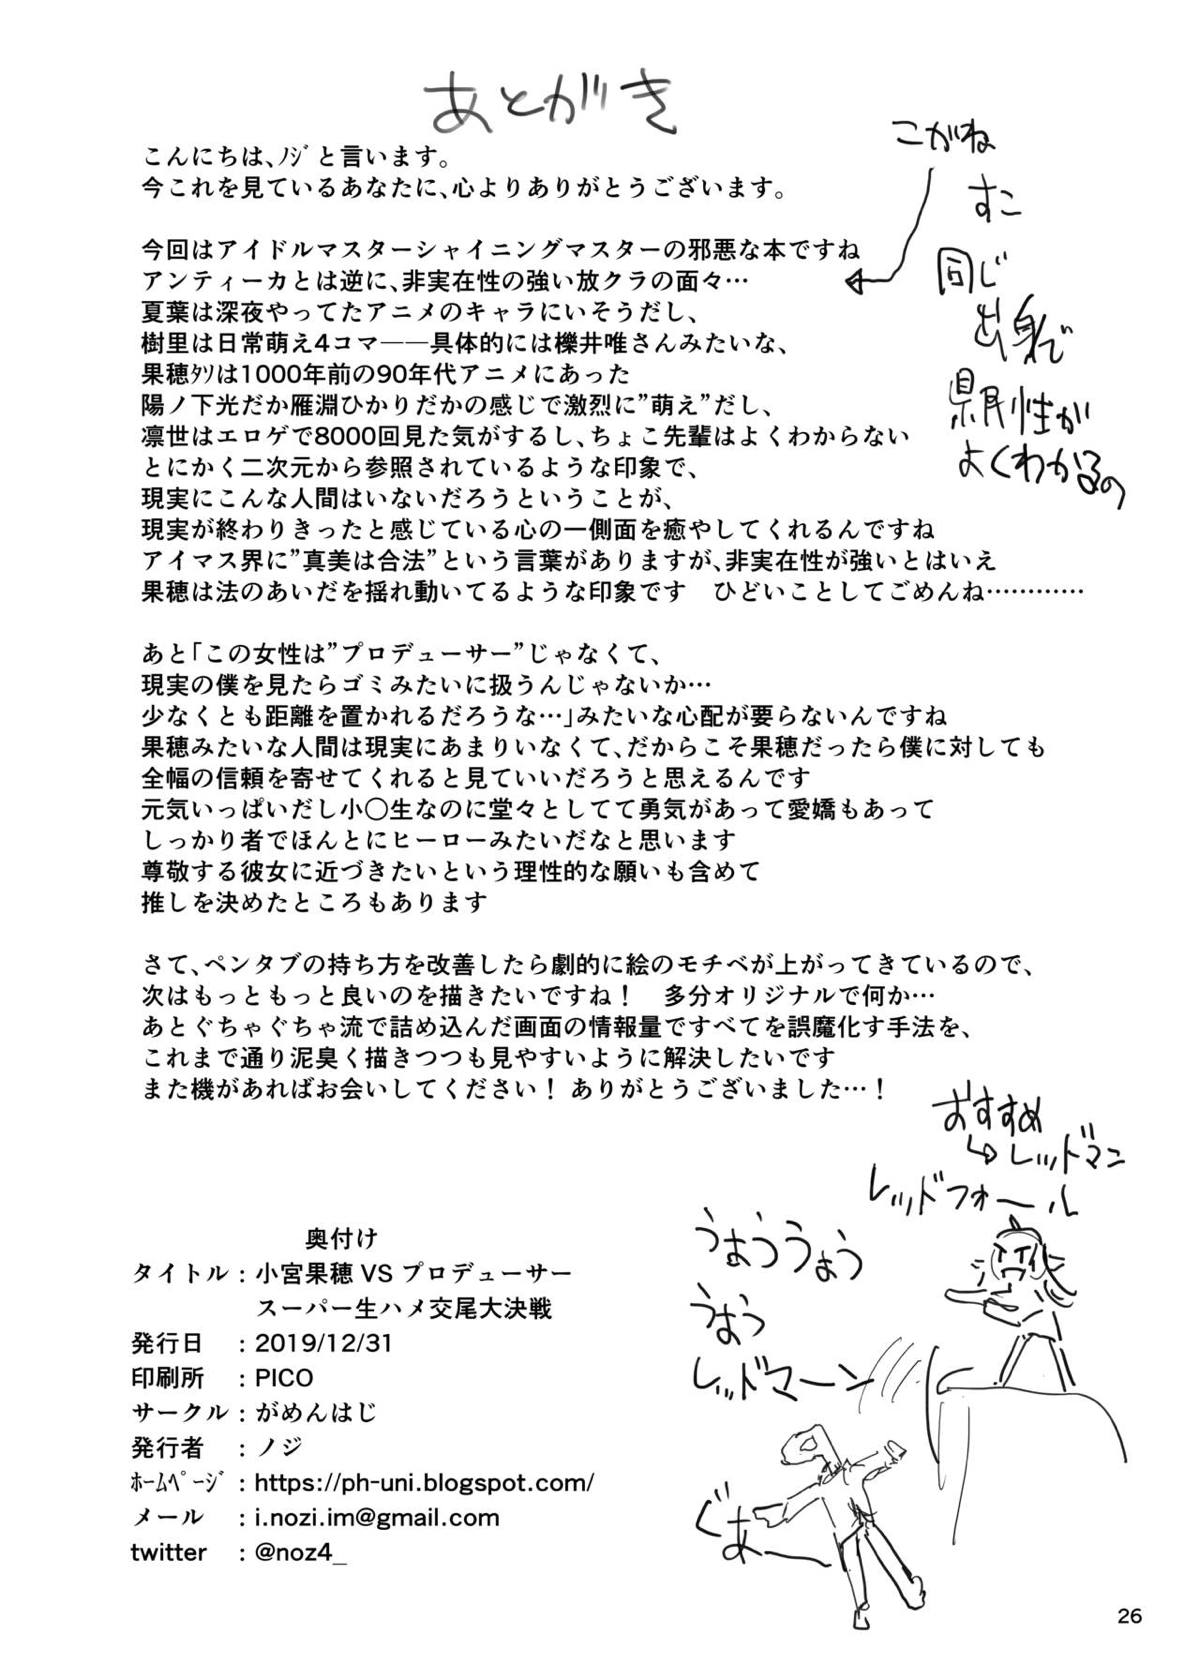 あとがき
こんにちは、ﾉｼﾞと言います。
今これを見ているあなたに、心よりありがとうございます。
今回はアイドルマスターシャイニングマスターの邪悪な本ですね
アンティーカとは逆に、非実在性の強い放クラの面々…
夏葉は深夜やってたアニメのキャラにいそうだし、
樹里は日常萌え4コマ――具体的には櫟井唯さんみたいな、
果穂ﾀｿは1000年前の90年代アニメにあった
陽ノ下光だか雁淵ひかりだかの感じで激烈に”萌え”だし、
凛世はエロゲで8000回見た気がするし、ちょこ先輩はよくわからない
とにかく二次元から参照されているような印象で、
現実にこんな人間はいないだろうということが、
現実が終わりきったと感じている心の一側面を癒やしてくれるんですね
アイマス界に”真美は合法”という言葉がありますが、非実在性が強いとはいえ
果穂は法のあいだを揺れ動いてるような印象です　ひどいことしてごめんね…………
こがね
すこ
同じ
出身で
県民性が
よくわかるの
あと「この女性は”プロデューサー”じゃなくて、
現実の僕を見たらゴミみたいに扱うんじゃないか…
少なくとも距離を置かれるだろうな…」みたいな心配が要らないんですね
果穂みたいな人間は現実にあまりいなくて、だからこそ果穂だったら僕に対しても
全幅の信頼を寄せてくれると見ていいだろうと思えるんです
元気いっぱいだし小〇生なのに堂々としてて勇気があって愛嬌もあって
しっかり者でほんとにヒーローみたいだなと思います
尊敬する彼女に近づきたいという理性的な願いも含めて
推しを決めたところもあります
さて、ペンタブの持ち方を改善したら劇的に絵のモチベが上がってきているので、
次はもっともっと良いのを描きたいですね！　多分オリジナルで何か…
あとぐちゃぐちゃ流で詰め込んだ画面の情報量ですべてを誤魔化す手法を、
これまで通り泥臭く描きつつも見やすいように解決したいです
また機があればお会いしてください！ ありがとうございました…！
おすすめ
レッドマン
レッドフォール
うおううおう
うおう
レッドマーン
ぐあー
奥付け
タイトル : 小宮果穂 VS プロデューサー
スーパー生ハメ交尾大決戦
発行日 : 2019/12/31
印刷所 : PICO
サークル : がめんはじ
発行者 : ノジ
ﾎｰﾑﾍﾟｰｼﾞ : https://ph-uni.blogspot.com/
メール : i.nozi.im@gmail.com
twitter : @noz4_
26